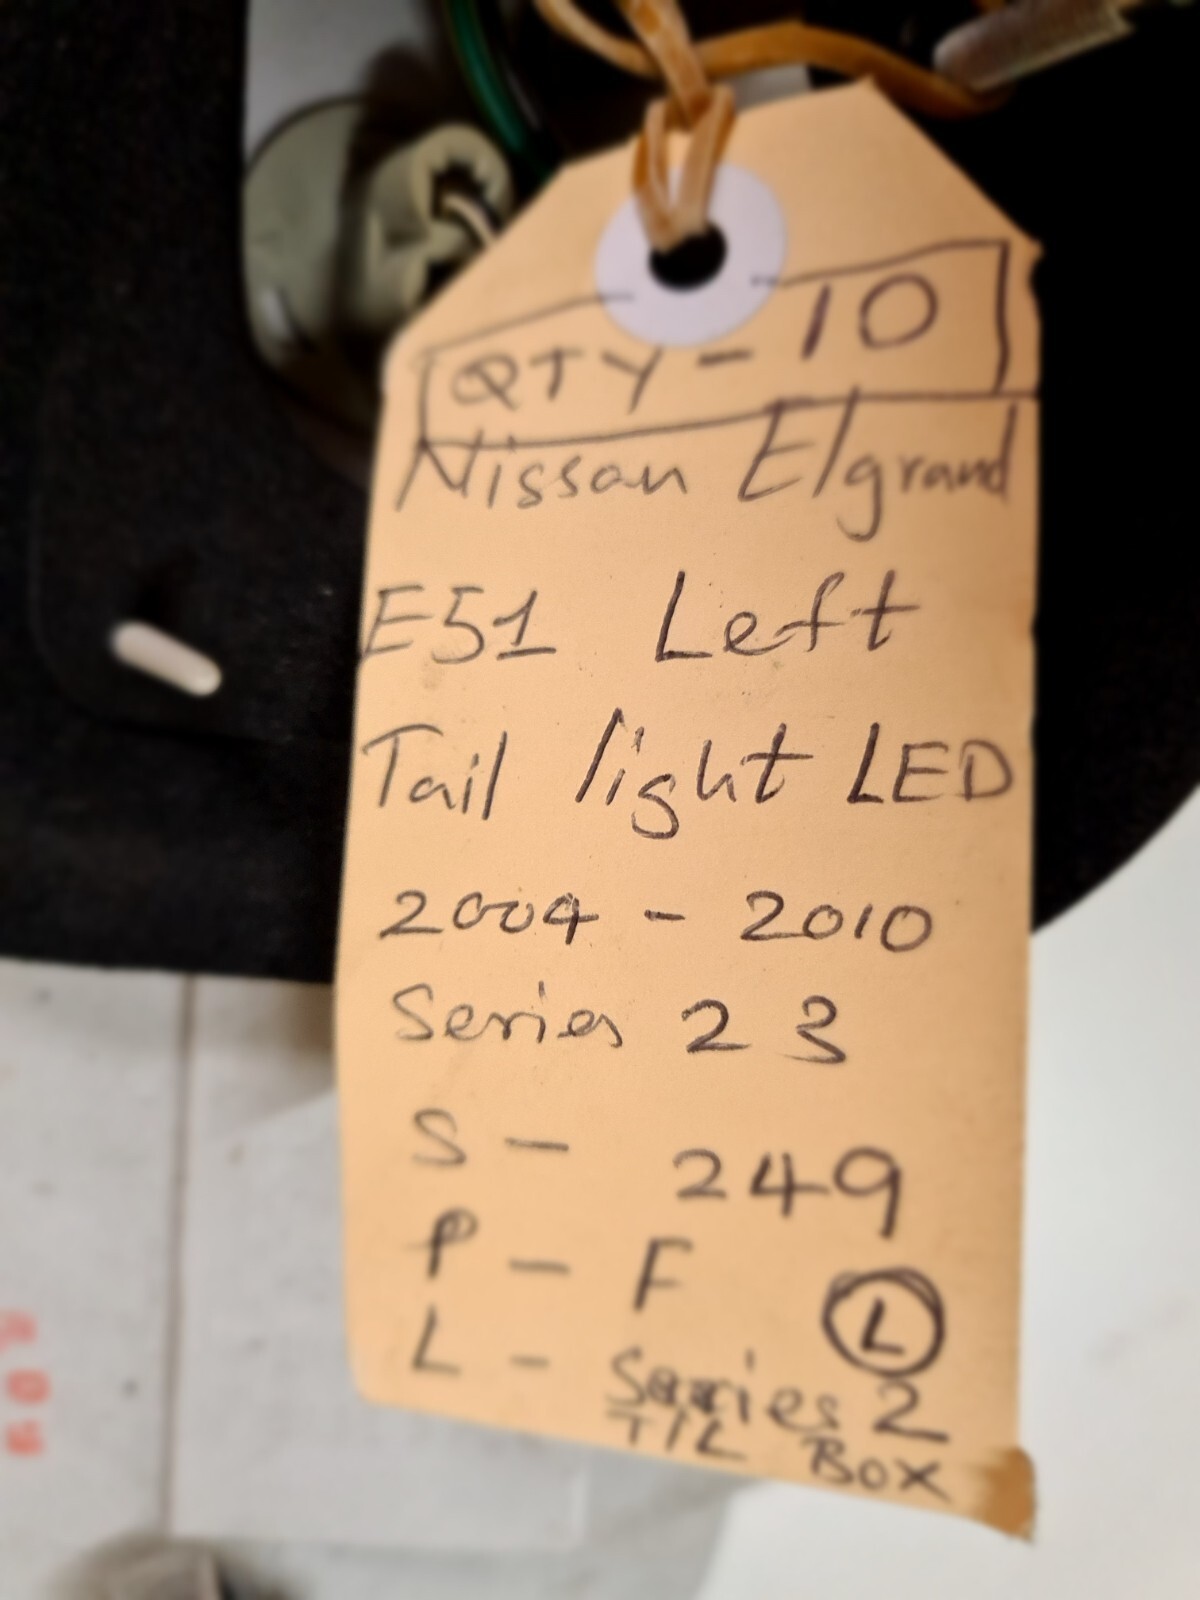 QTY - 10
Nissan Elgrand
E51 Left
Tail light LED
2004 - 2010
Series 2 3
S - 249
P - F
L
L - Series 2
T/L BOX